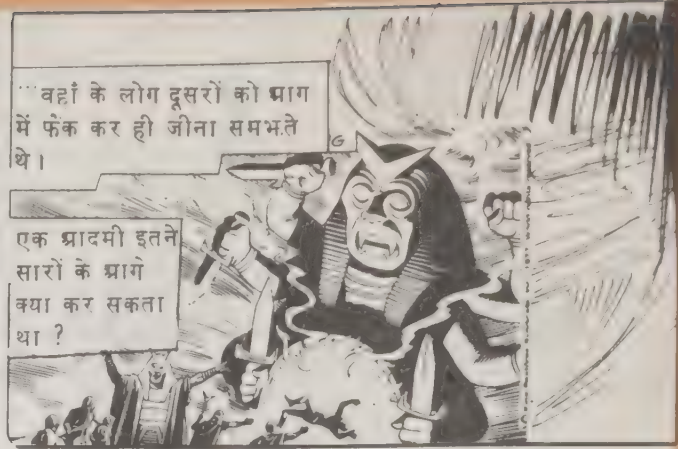 ...वहाँ के लोग दूसरों को आग
में फेंक कर ही जीना समझते
थे।
एक आदमी इतने
सारों के आगे
क्या कर सकता
था ?